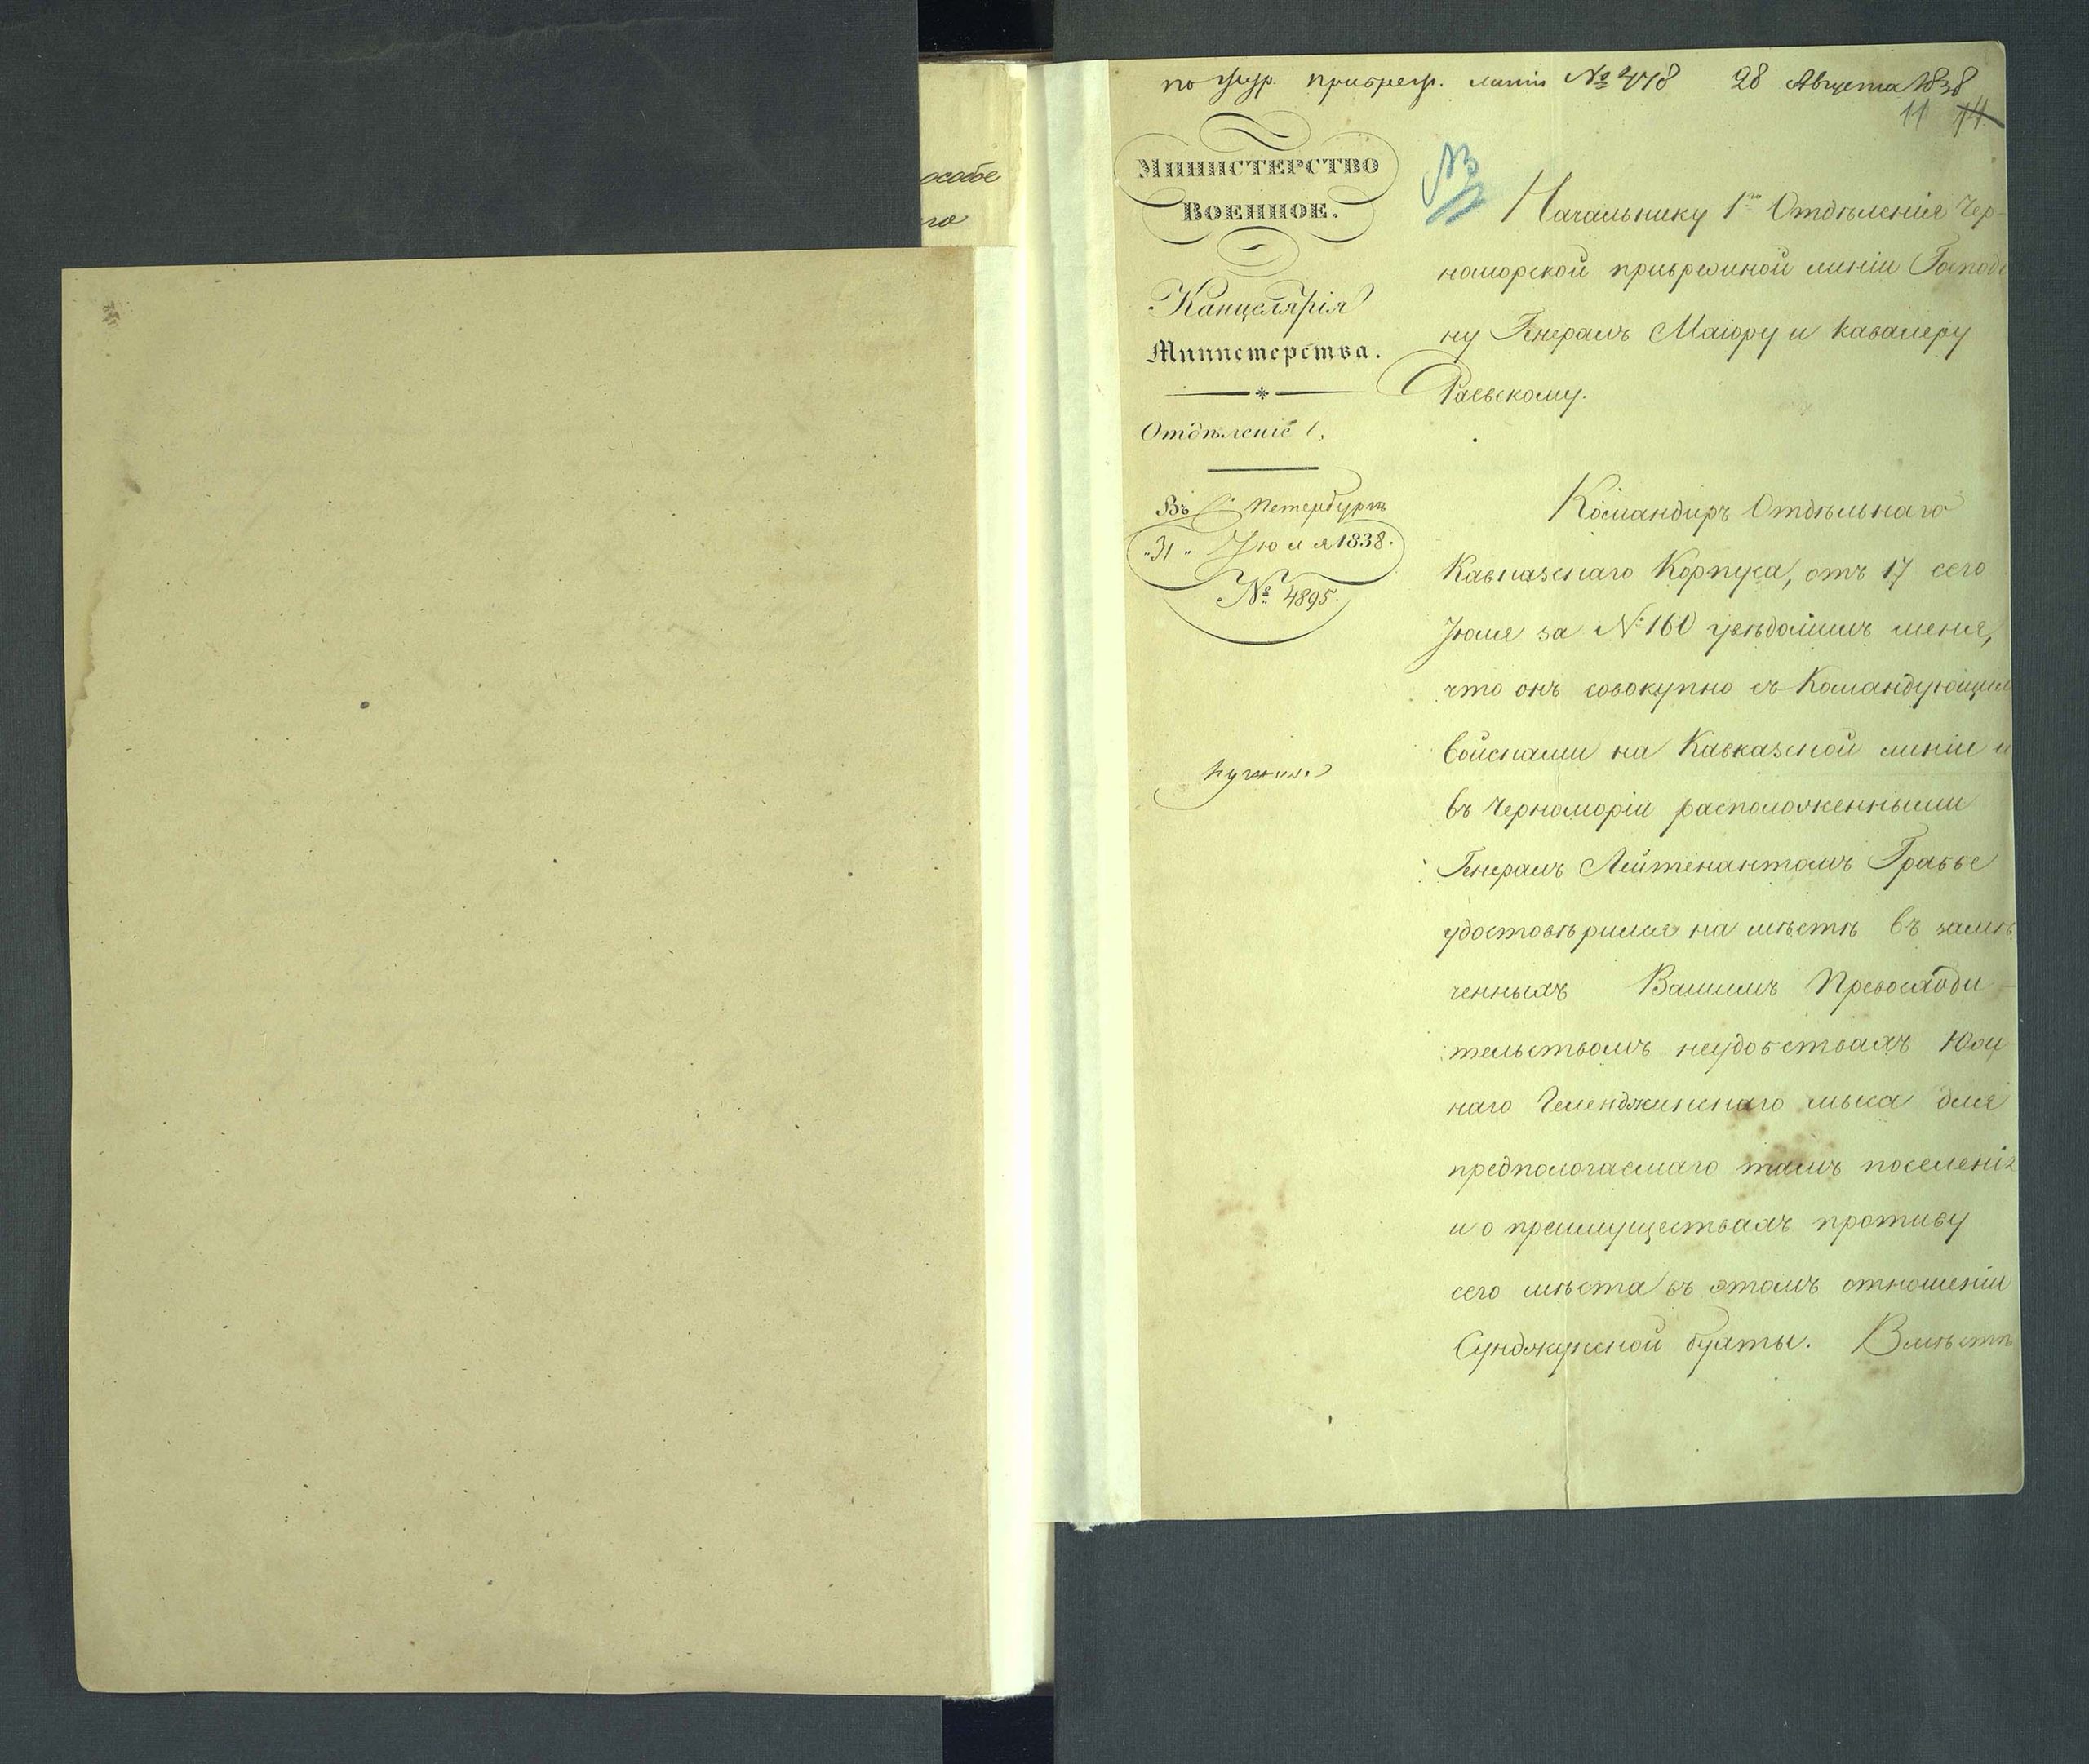 особое
го
по жур. прибреж. линіи № 448 28 Августа 1838
11 14
МИНИСТЕРСТВО
ВОЕННОЕ.
Канцелярія
Министерства.
Отдѣленіе 1,
Въ С. Петербургѣ
"31" Іюля 1838.
№ 4895.
№
Начальнику 1го Отдѣленія Чер-
номорской прибрежной линіи Господи
ну Генералъ Маіору и Кавалеру
Раевскому.
Командиръ Отдѣльнаго
Кавказскаго Корпуса, отъ 17 сего
Іюля за № 160 увѣдомилъ меня,
что онъ совокупно съ Командующим
войсками на Кавказской линіи и
въ Черноморіи расположенными
Генералъ Лейтенантомъ Граббе
удостовѣрился на мѣстѣ въ замѣ
ченныхъ Вашимъ Превосходи-
тельствомъ неудобствахъ Юж
наго Геленджикскаго мыса для
предпологаемаго тамъ поселенія
и о преимуществахъ противу
сего мѣста въ этомъ отношеніи
Сунджукской бухты. Вмѣстѣ